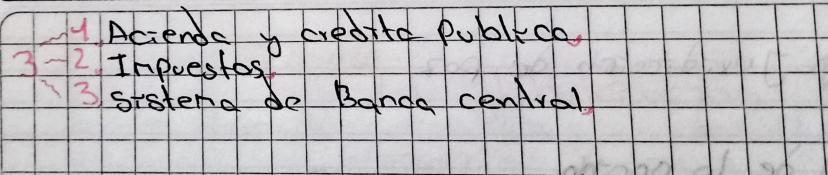 1. Acienda y credito Publico.
3 - 2. Impuestos.
3. Sistema de Banca central.